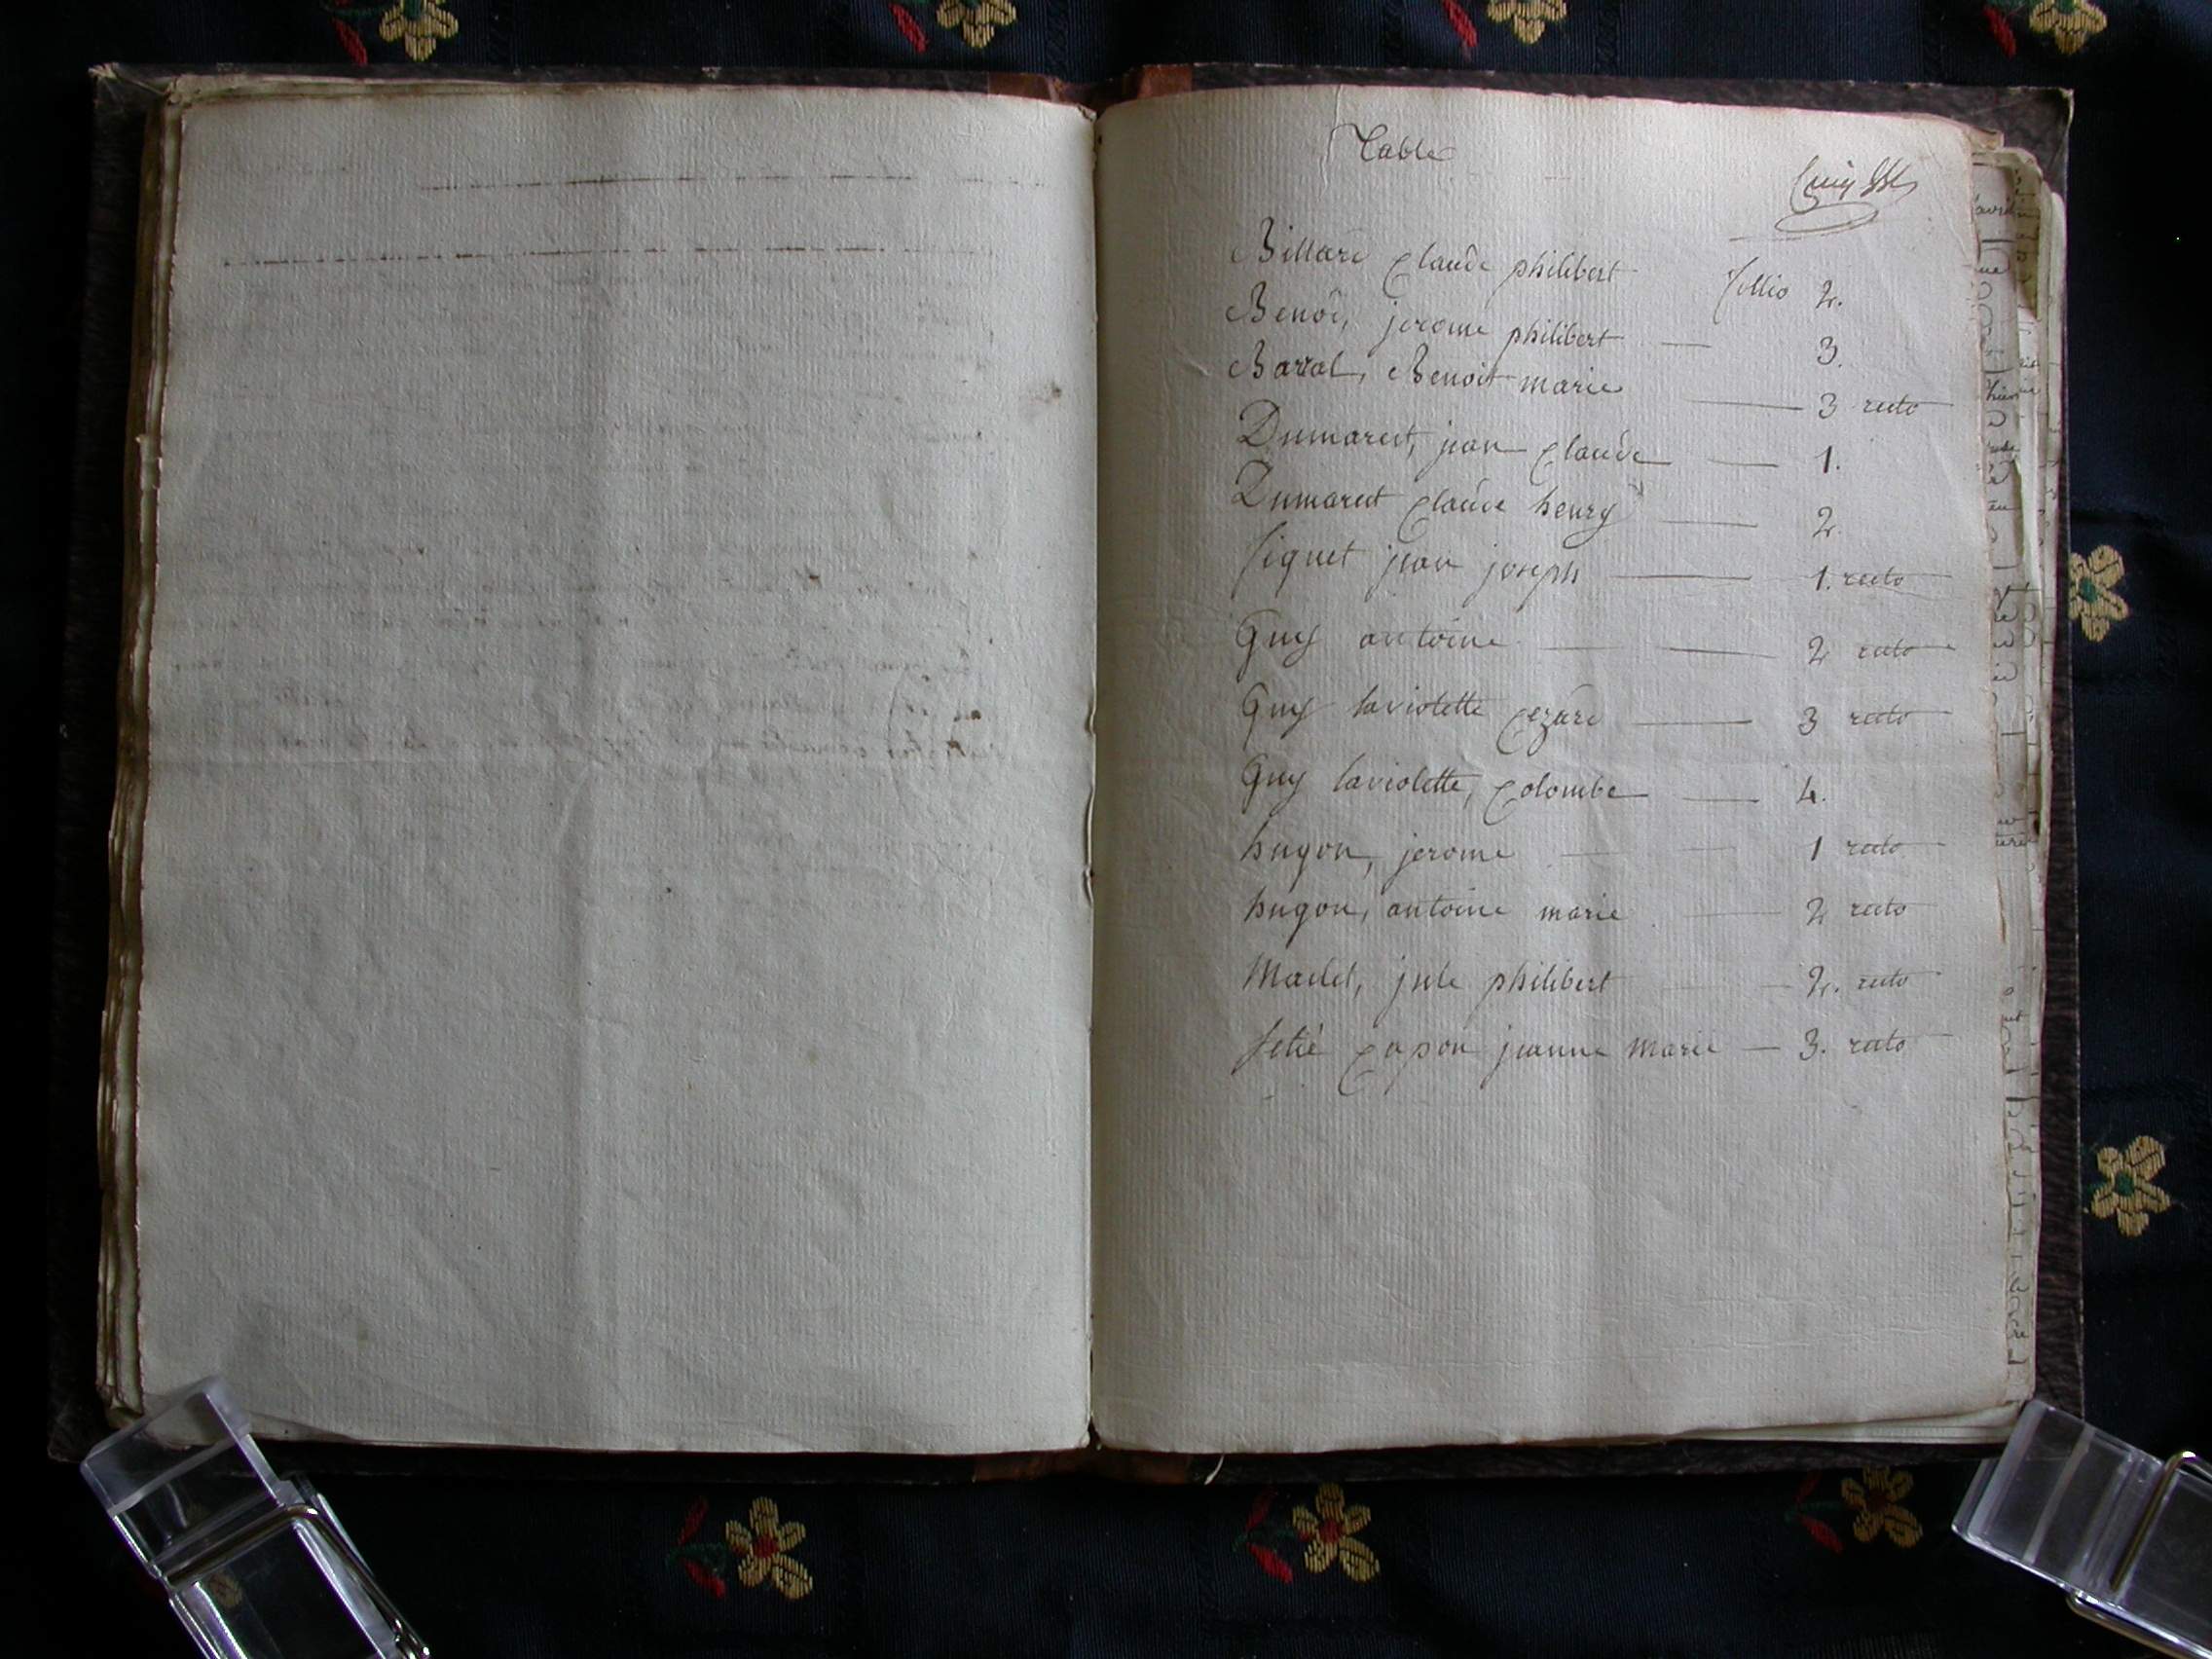 Table
Billard Claude philibert follio 2.
Benoi, jerome philibert 3.
Barral, Benoit marie 3 recto
Dumarest, jean Claude 1.
Dumarest Claude henry 2.
jean joseph 1. recto
Guy antoine 2 recto
Guy laviolette Cezard 3 recto
Guy laviolette, Colombe 4.
hugon, jerome 1 recto
hugon, antoine marie 2 recto
jule philibert 2. recto
Capon jeanne marie 3. recto